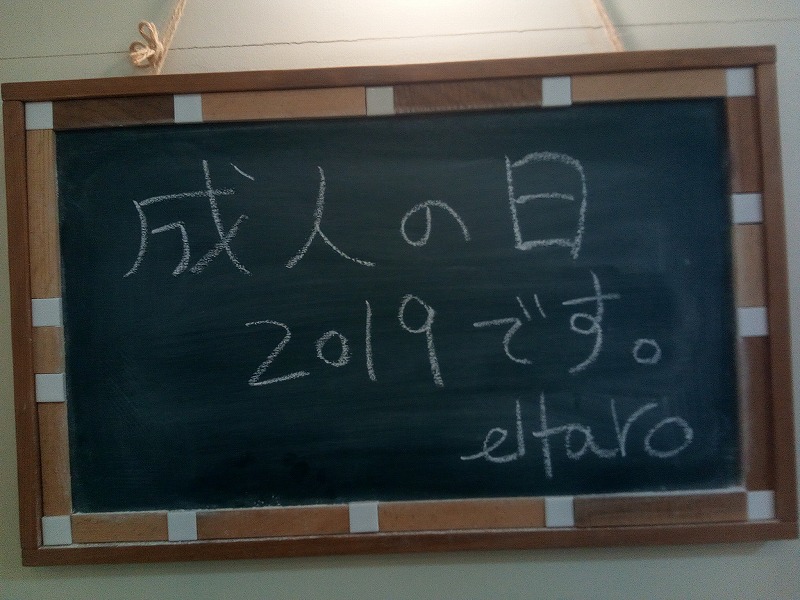 成人の日
2019です。
eltaro